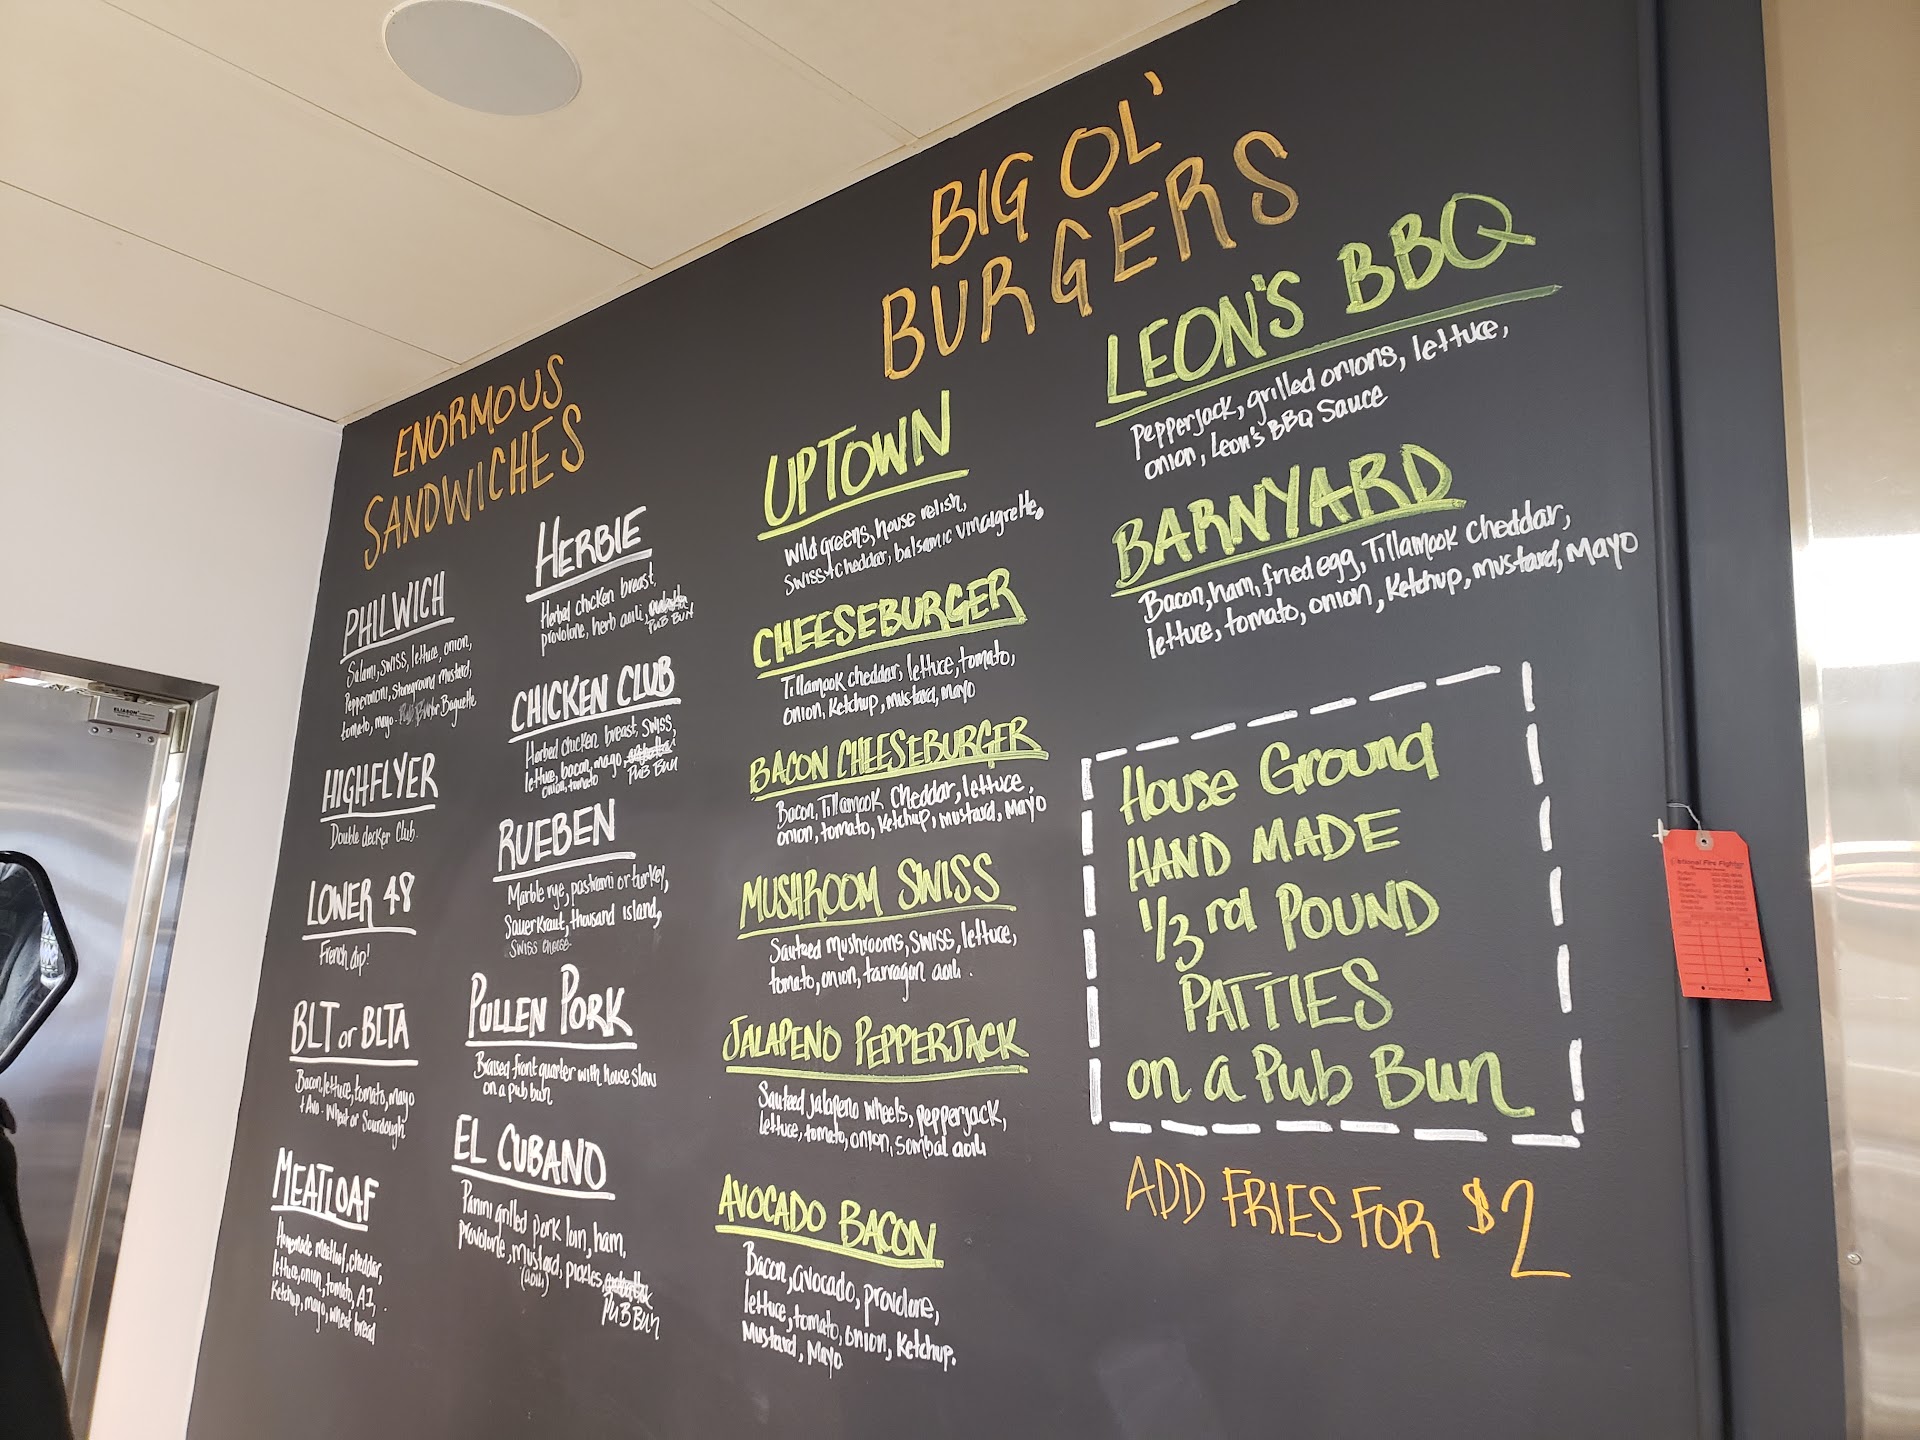 ENORMOUS
SANDWICHES
PHILWICH
Salami, swiss, lettuce, onion,
Pepperoncini, stoneground mustard,
tomato, mayo - Baguette
HIGHFLYER
Double decker Club.
LOWER 48
French dip!
BLT or BLTA
Bacon, lettuce, tomato, mayo
+ Avo - Wheat or Sourdough
MEATLOAF
Homemade meatloaf, cheddar,
lettuce, onion, tomato, A1,
Ketchup, mayo, wheat bread
HERBIE
Herbed chicken breast,
provolone, herb aoili,
PUB BUN
CHICKEN CLUB
Herbed chicken breast, swiss,
lettuce, bacon, mayo,
onion, tomato PUB BUN
RUEBEN
Marble rye, pastrami or turkey,
Sauerkraut, thousand island,
Swiss cheese.
PULLEN PORK
Braised front quarter with house slaw
on a pub bun
EL CUBANO
Panini grilled pork loin, ham,
provolone, mustard, pickles,
(aoili)
PUB BUN
BIG OL'
BURGERS
UPTOWN
Wild greens, house relish,
Swiss + cheddar, balsamic vinaigrette.
CHEESEBURGER
Tillamook cheddar, lettuce, tomato,
onion, Ketchup, mustard, mayo
BACON CHEESEBURGER
Bacon, Tillamook Cheddar, lettuce,
onion, tomato, Ketchup, mustard, Mayo
MUSHROOM SWISS
Sauteed mushrooms, Swiss, lettuce,
tomato, onion, tarragon aoili.
JALAPENO PEPPERJACK
Sauteed jalapeno wheels, pepperjack,
lettuce, tomato, onion, sombal aoili
AVOCADO BACON
Bacon, avocado, provolone,
lettuce, tomato, onion, Ketchup.
Mustard, Mayo
LEON'S BBQ
Pepperjack, grilled onions, lettuce,
onion, Leon's BBQ Sauce
BARNYARD
Bacon, ham, fried egg, Tillamook Cheddar,
lettuce, tomato, onion, Ketchup, mustard, Mayo
House Ground
HAND MADE
1/3rd POUND
PATTIES
on a Pub Bun
ADD FRIES FOR $2
ELIASON
National Fire Fighter